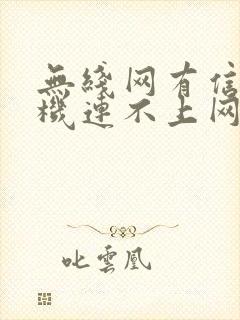 無綫网有信
機連不上网
叱雲凰